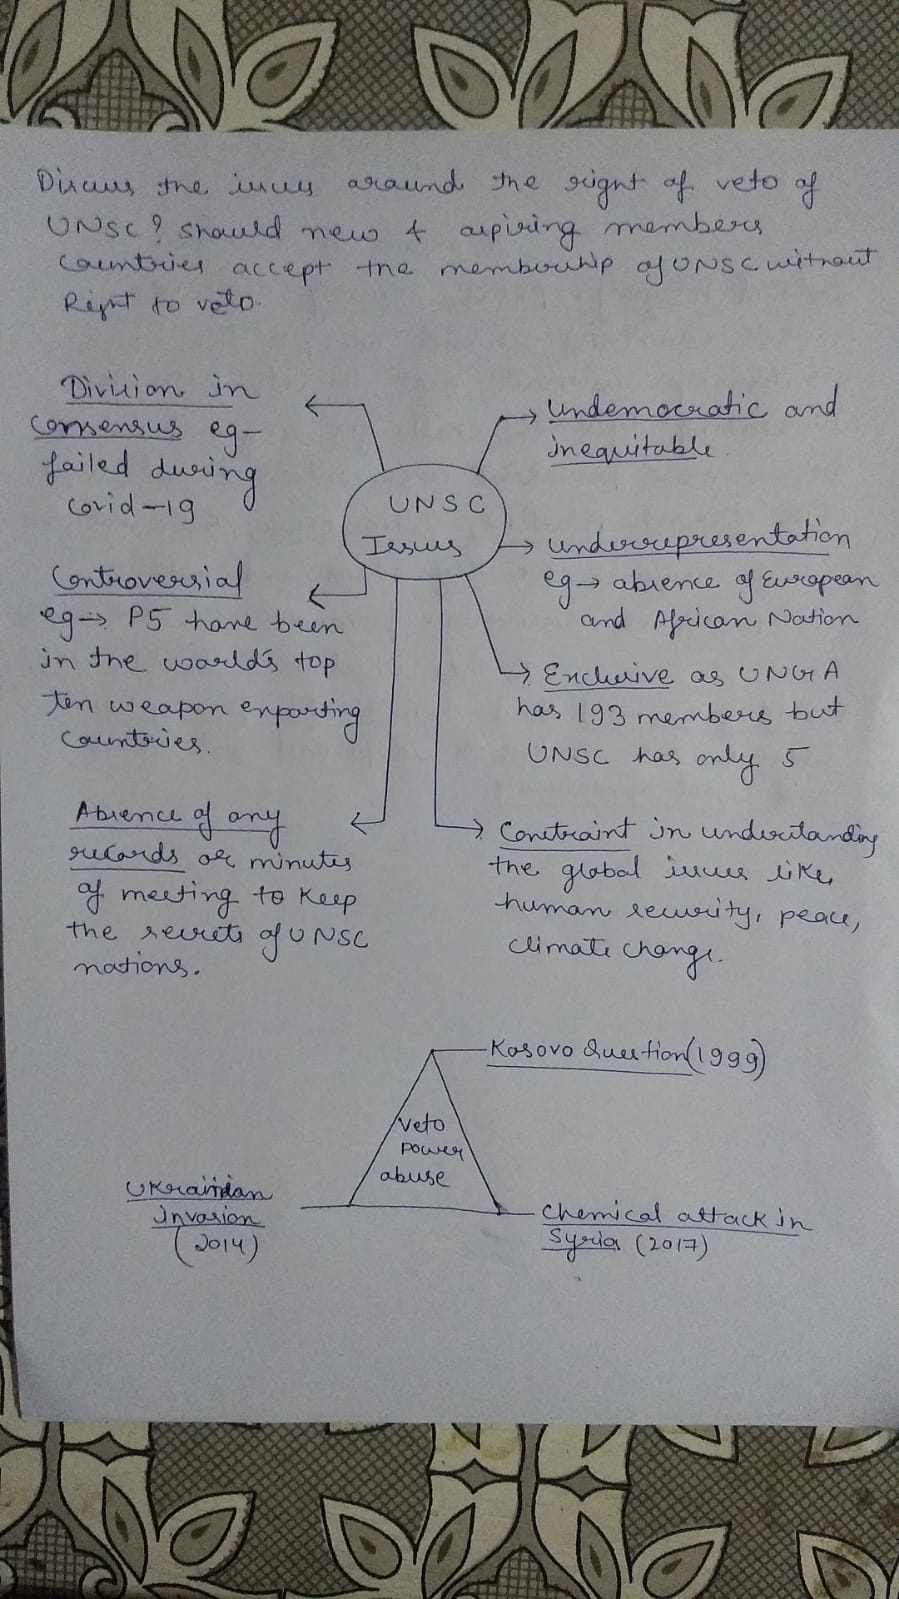 Discuss the issues around the right of veto of
UNSC? Should new & aspiring members
Countries accept the membership of UNSC without
Right to veto.
Division in
consensus eg-
failed during
Covid-19
Controversial
eg→ P5 have been
in the world's top
ten weapon exporting
Countries.
Absence of any
records or minutes
of meeting to keep
the secrets of UNSC
nations.
UNSC
Issues
undemocratic and
inequitable.
underrepresentation
eg→ absence of European
and African Nation
Exclusive as UNGA
has 193 members but
UNSC has only 5
Constraint in understanding
the global issues like,
human security, peace,
climate change.
Kosovo Question(1999)
Veto
power
abuse
Ukrainian
invasion
(2014)
Chemical attack in
Syria (2017)